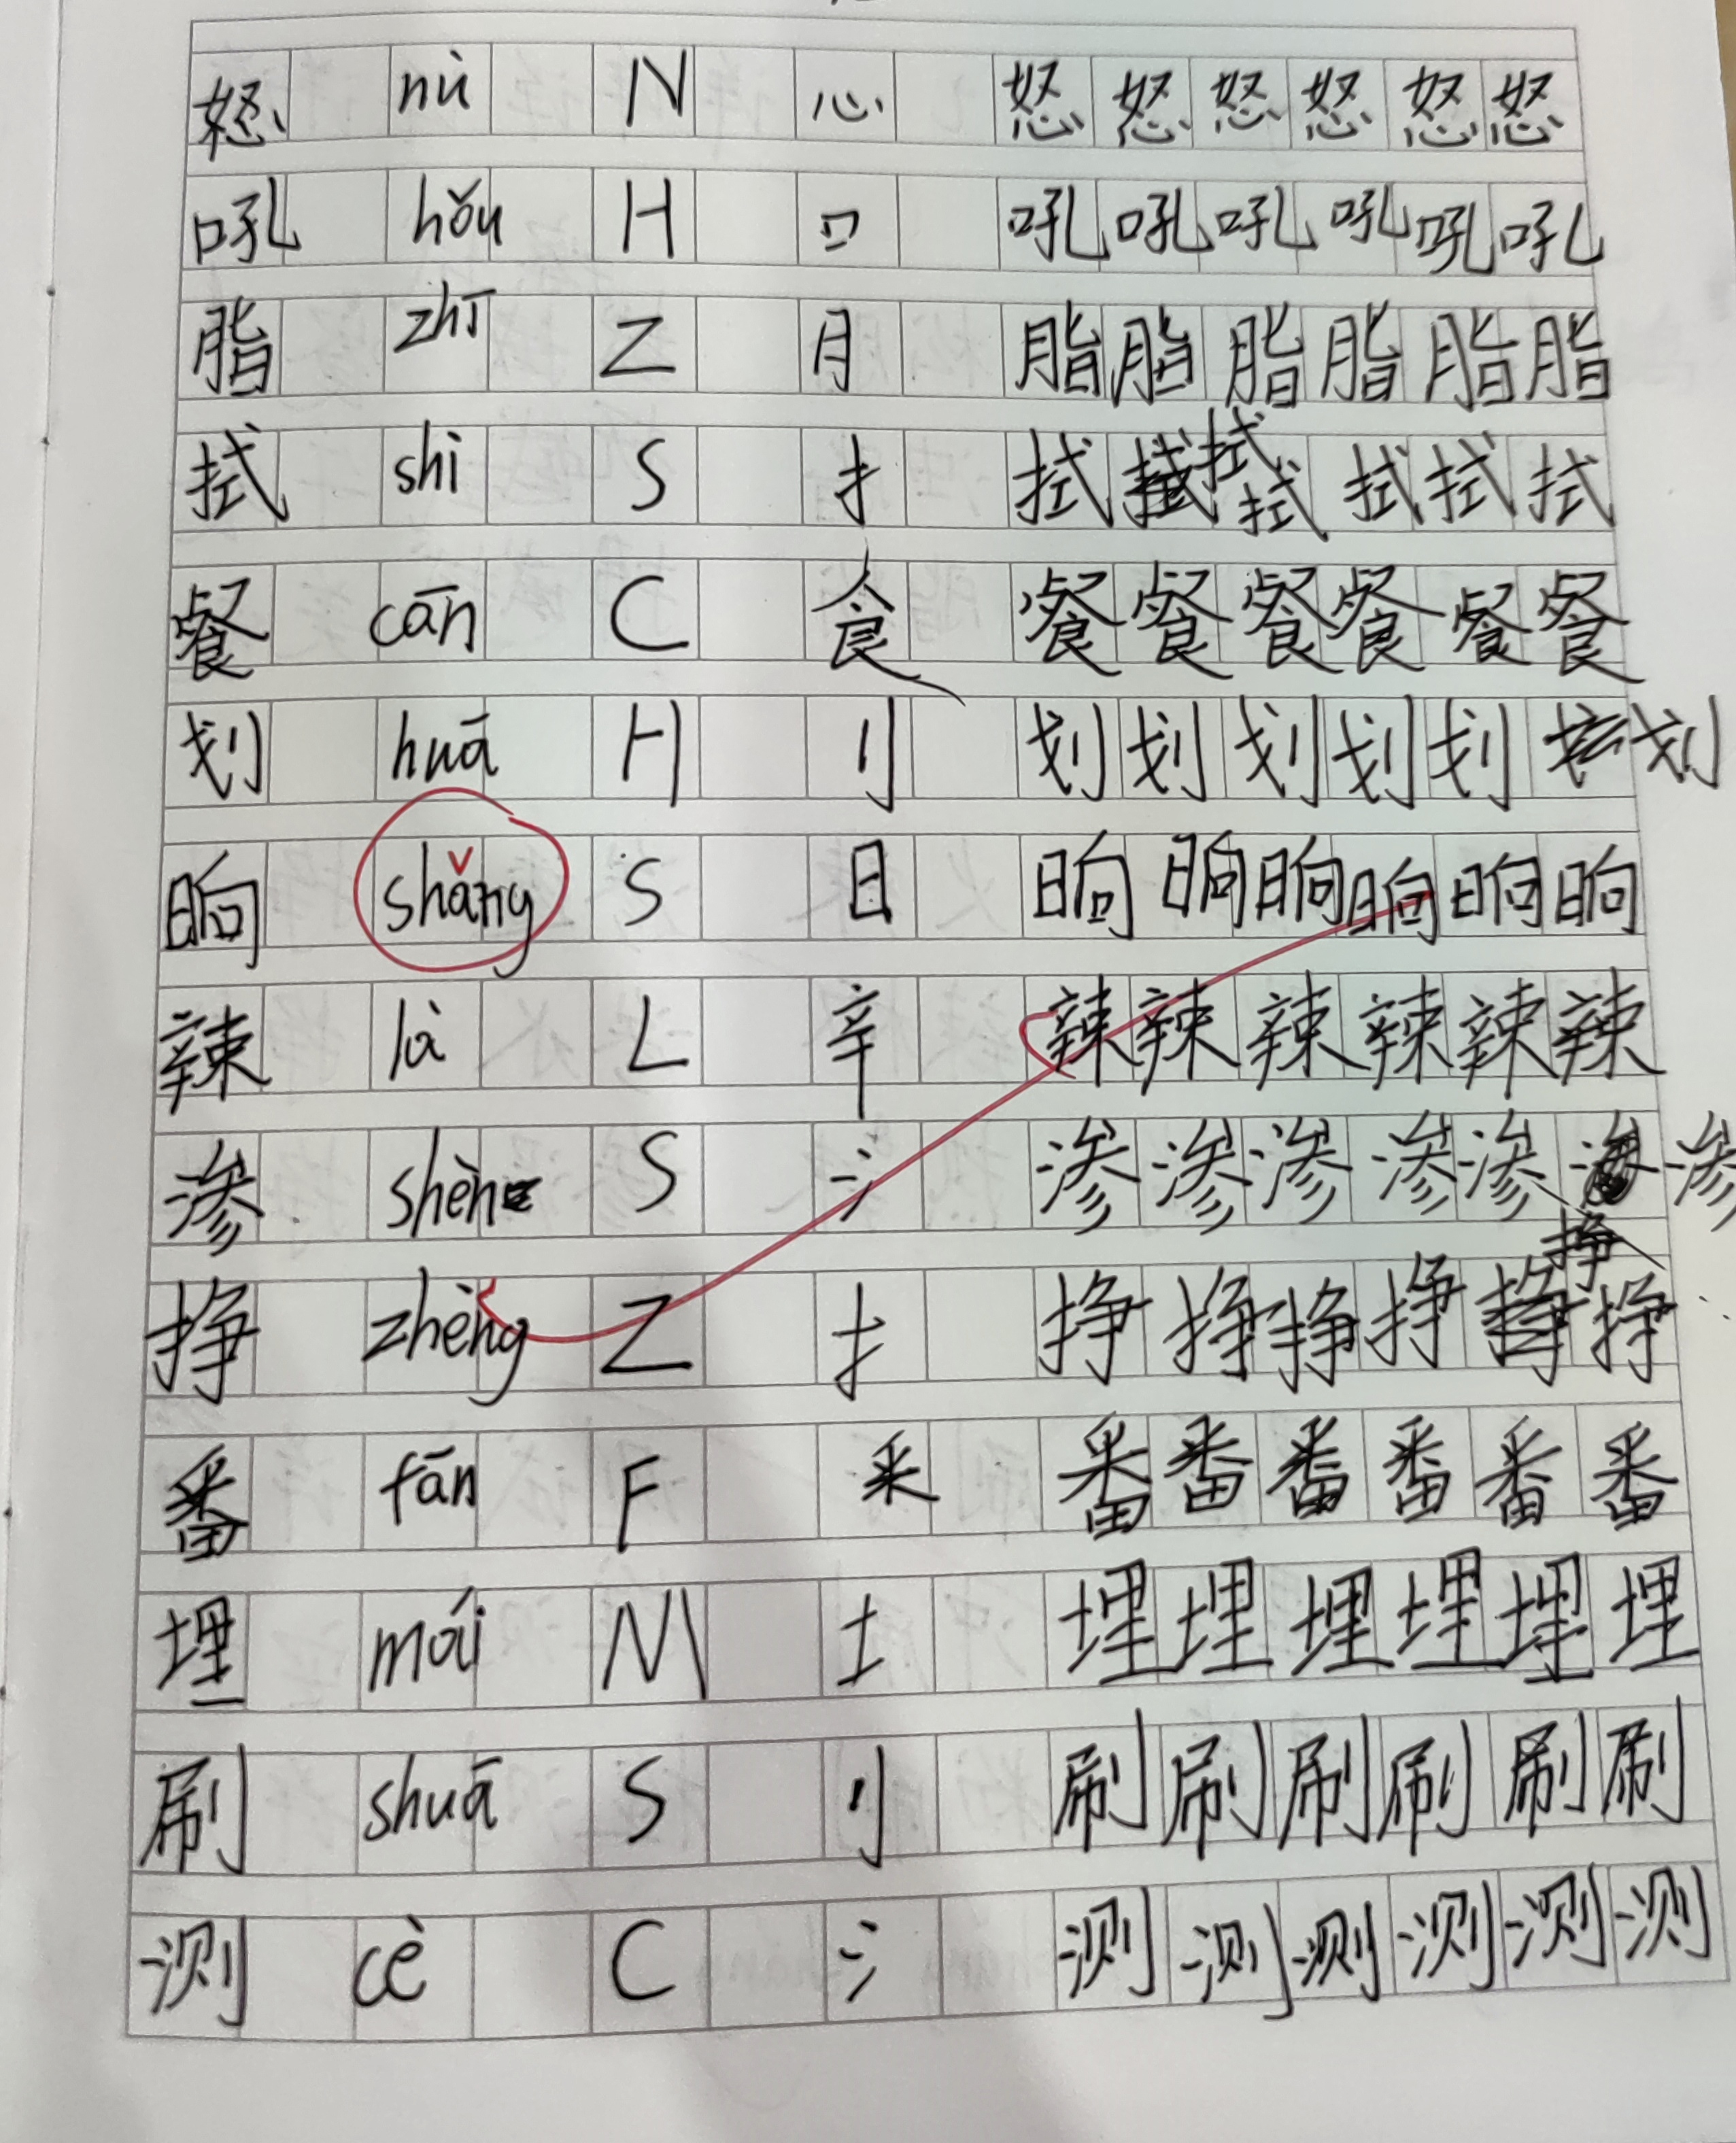 怒 nù N 心 怒 怒 怒 怒 怒 怒
吼 hǒu H 口 吼 吼 吼 吼 吼 吼
脂 zhī Z 月 脂 脂 脂 脂 脂 脂
拭 shì S 扌 拭 拭 拭 拭 拭 拭
餐 cān C 食 餐 餐 餐 餐 餐 餐
划 huā H 刂 划 划 划 划 划 划
晌 shǎng S 日 晌 晌 晌 晌 晌 晌
辣 là L 辛 辣 辣 辣 辣 辣 辣
渗 shèn S 氵 渗 渗 渗 渗 渗 渗
挣 zhèng Z 扌 挣 挣 挣 挣 挣 挣
番 fān F 釆 番 番 番 番 番 番
埋 mái M 土 埋 埋 埋 埋 埋 埋
刷 shuā S 刂 刷 刷 刷 刷 刷 刷
测 cè C 氵 测 测 测 测 测 测